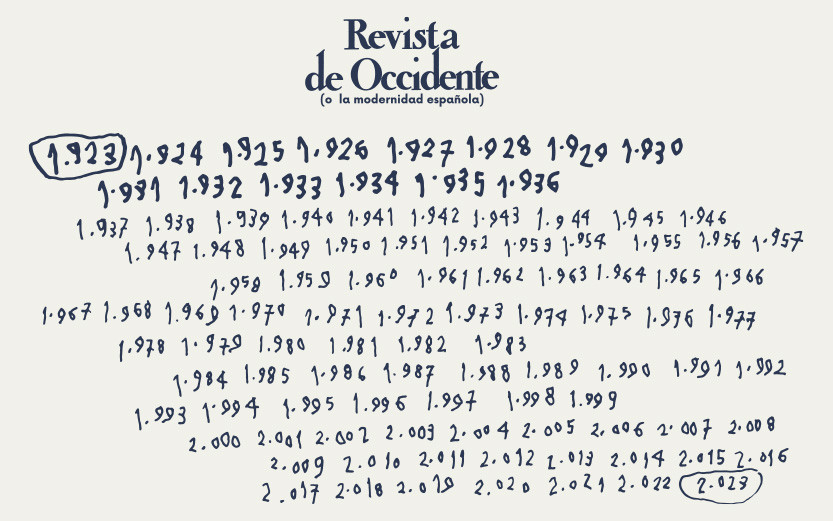 Revista
de Occidente
(o la modernidad española)
1.923 1.924 1.925 1.926 1.927 1.928 1.929 1.930
1.931 1.932 1.933 1.934 1.935 1.936
1.937 1.938 1.939 1.940 1.941 1.942 1.943 1.944 1.945 1.946
1.947 1.948 1.949 1.950 1.951 1.952 1.953 1.954 1.955 1.956 1.957
1.958 1.959 1.960 1.961 1.962 1.963 1.964 1.965 1.966
1.967 1.968 1.969 1.970 1.971 1.972 1.973 1.974 1.975 1.976 1.977
1.978 1.979 1.980 1.981 1.982 1.983
1.984 1.985 1.986 1.987 1.988 1.989 1.990 1.991 1.992
1.993 1.994 1.995 1.996 1.997 1.998 1.999
2.000 2.001 2.002 2.003 2.004 2.005 2.006 2.007 2.008
2.009 2.010 2.011 2.012 2.013 2.014 2.015 2.016
2.017 2.018 2.019 2.020 2.021 2.022 2.023